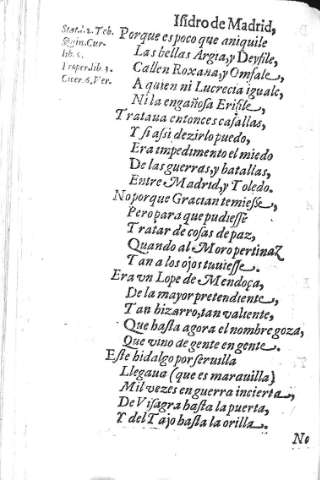 Isidro de Madrid,
Stat.l.2. Teb.
Quin. Cur-
lib. 5.
Propert. lib. 3.
Cuer. 6, Ver.
Porque es poco que aniquile
Las bellas Argia, y Deyfile,
Callen Roxana, y Omfale,
A quien ni Lucrecia iguale,
Ni la engañosa Erifile,
Trataua entonces casallas,
Y si assi dezirlo puedo,
Era impedimento el miedo
De las guerras, y batallas,
Entre Madrid, y Toledo.
No porque Gracian temiesse,
Pero para que pudiesse
Tratar de cosas de paz,
Quando al Moro pertinaz
Tan a los ojos tuuiesse.
Era vn Lope de Mendoça,
De la mayor pretendiente,
Tan bizarro, tan valiente,
Que hasta agora el nombre goza,
Que vino de gente en gente.
Este hidalgo por seruilla
Llegaua (que es marauilla)
Mil vezes en guerra incierta,
De Visagra hasta la puerta,
Y del Tajo hasta la orilla.
No